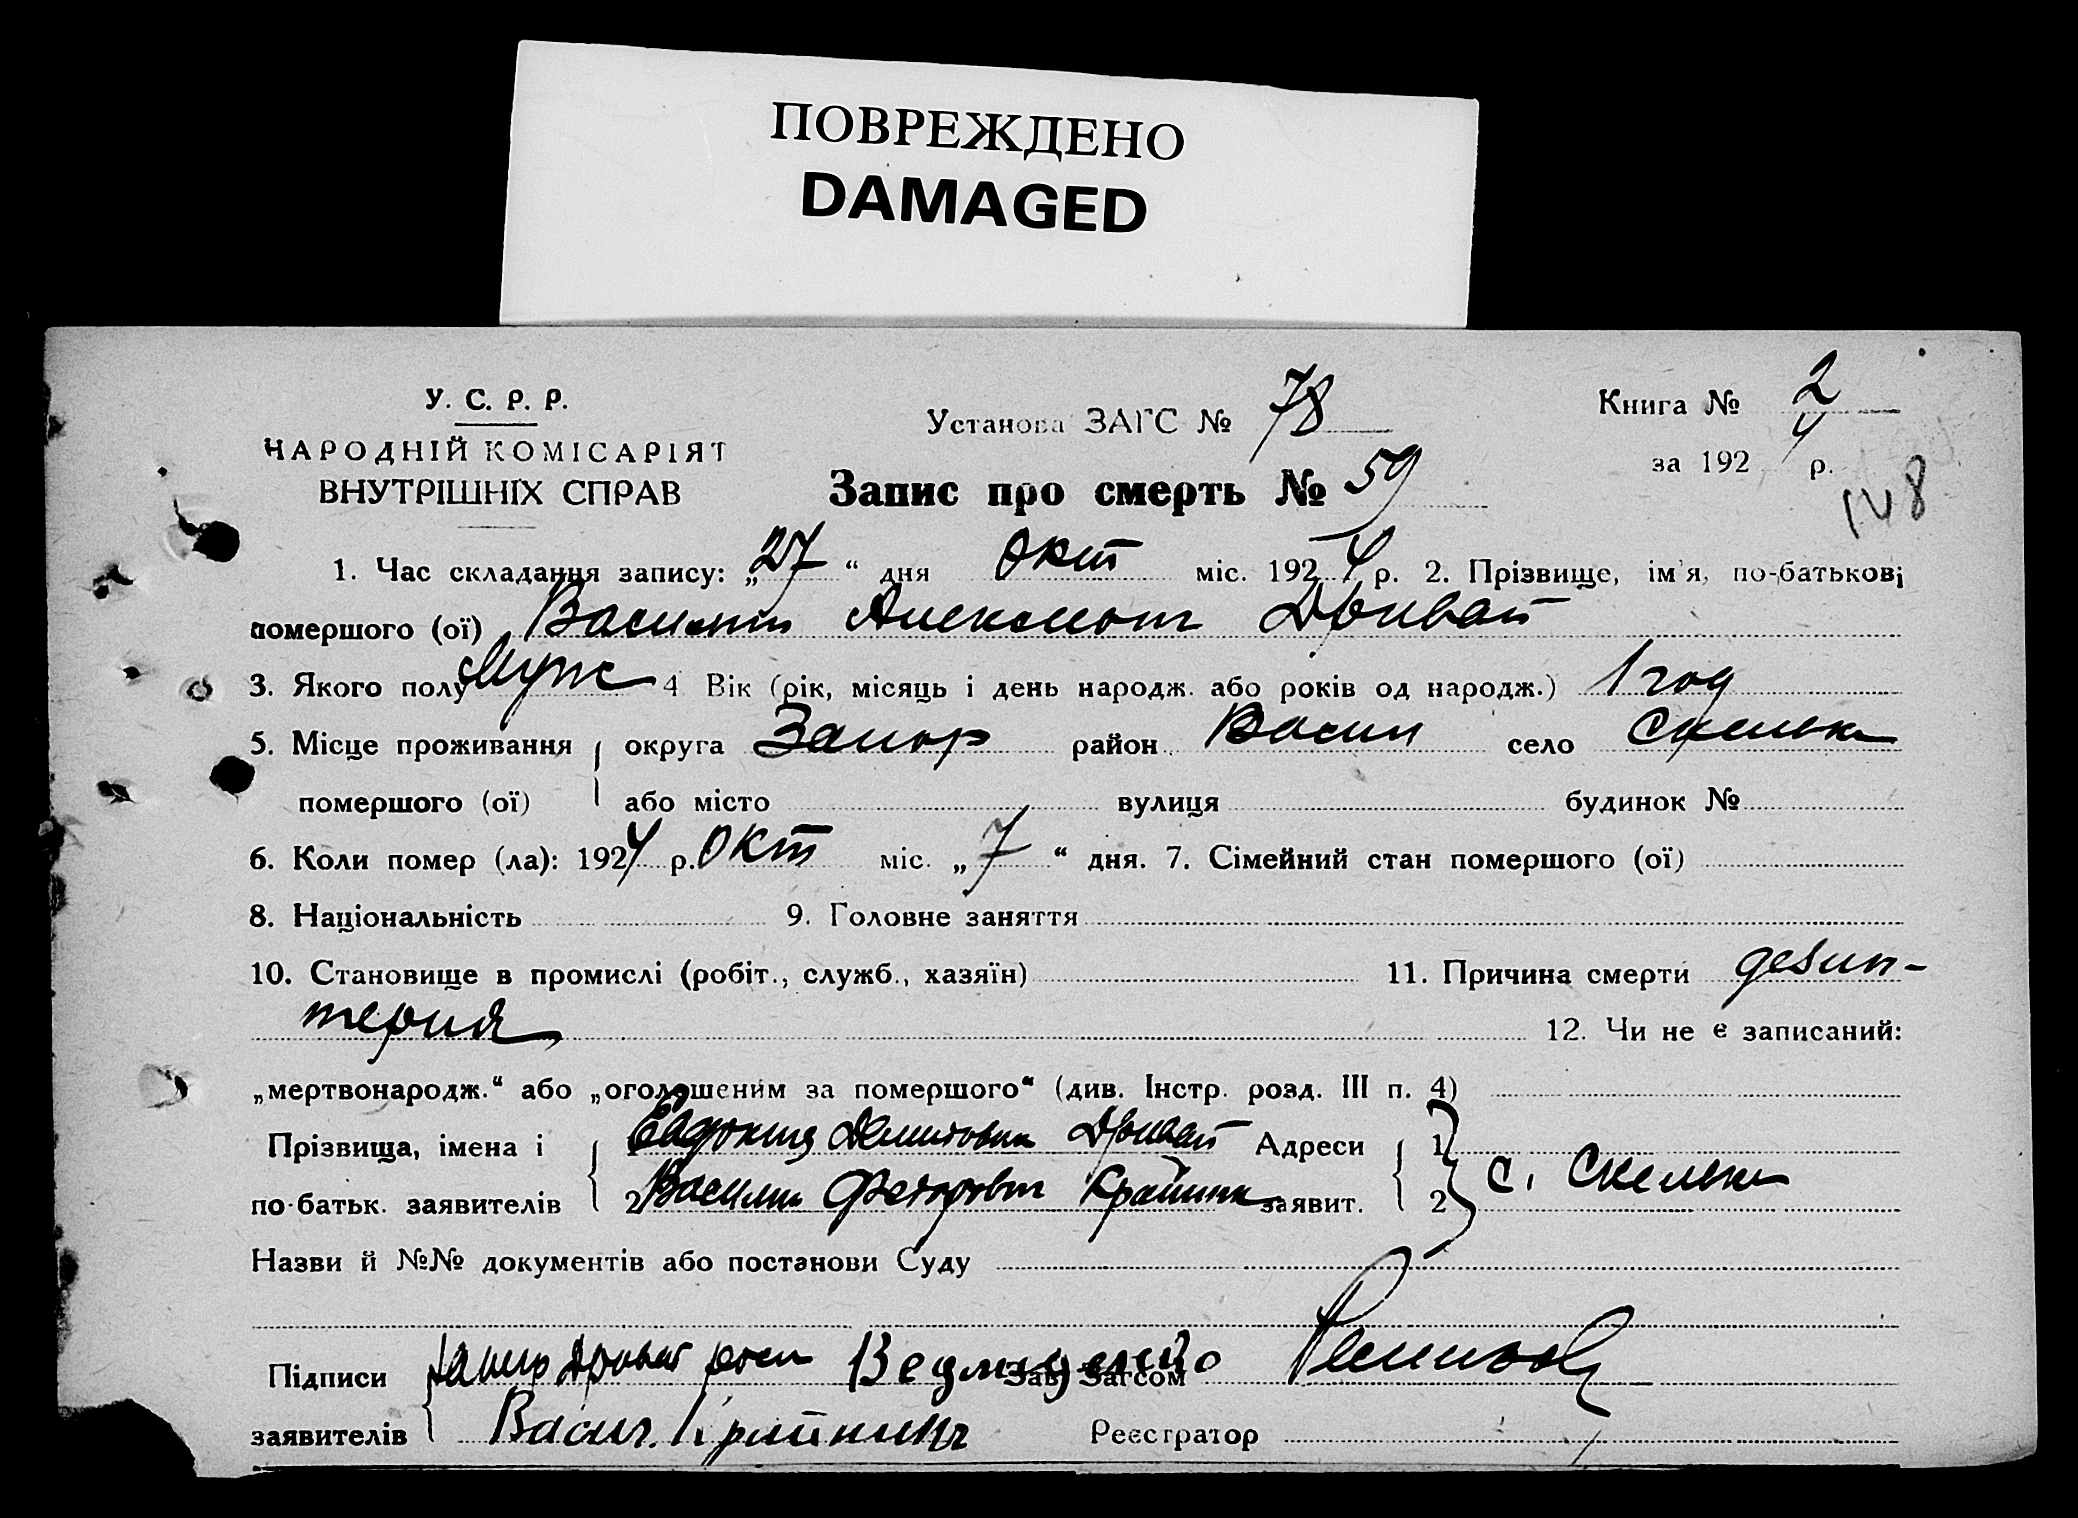 ПОВРЕЖДЕНО
DAMAGED
У. С. Р. Р.
НАРОДНІЙ КОМІСАРІЯТ
ВНУТРІШНІХ СПРАВ
Установа ЗАГС № 78
Книга № 2
за 1924 р.
148
Запис про смерть № 59
1. Час складання запису: „27“ дня Окт міс. 1924 р. 2. Прізвище, ім'я, по-батькові
помершого (ої) Дриват
3. Якого полу Муж 4 Вік (рік, місяць і день народж. або років од народж.) 1 год
5. Місце проживання округа Запор район Васил село Скельки
помершого (ої) або місто вулиця будинок №
6. Коли помер (ла): 1924 р. Окт міс. „7“ дня. 7. Сімейний стан помершого (ої)
8. Національність 9. Головне заняття
10. Становище в промислі (робіт., служб., хазяїн) 11. Причина смерти дезин-
терия 12. Чи не є записаний:
„мертвонародж.“ або „оголошеним за помершого“ (див. Інстр. розд. III п. 4)
Прізвища, імена і 1 Дриват Адреси 1
по-батьк. заявителів 2 Федорович заявит. 2 с. Скельки
Назви й №№ документів або постанови Суду
Підписи Зав. Загсом
заявителів Васил. Реєстратор